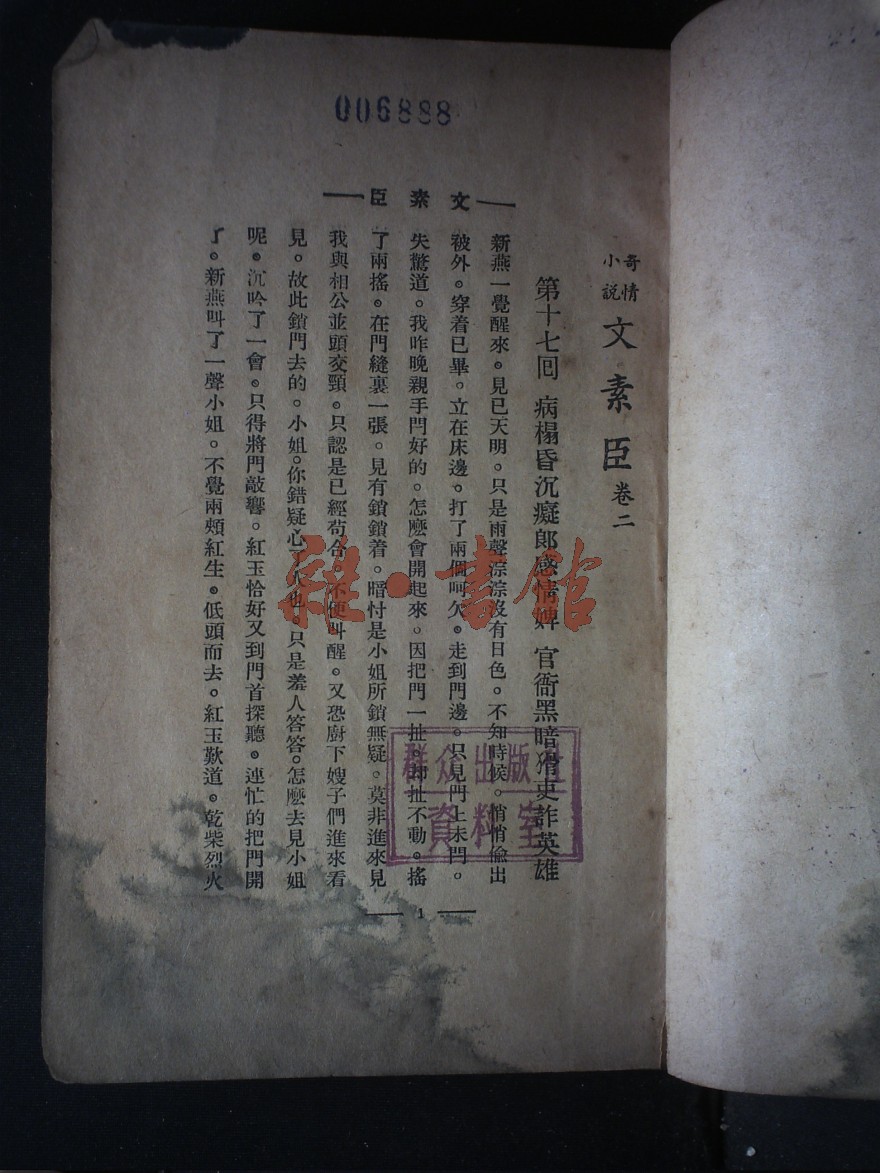 006888
奇情小説 文素臣 卷二
第十七回 病榻昏沉癡郎感情婢 官衙黑暗猾吏詐英雄
新燕一覺醒來。見已天明。只是雨聲淙淙沒有日色。不知時候。悄悄偷出
被外。穿着已畢。立在床邊。打了兩個呵欠。走到門邊。只見門上未閂。
失驚道。我昨晚親手閂好的。怎麽會開起來。因把門一扯。却扯不動。搖
了兩搖。在門縫裏一張。見有鎖鎖着。暗忖是小姐所鎖無疑。莫非進來見
我與相公並頭交頸。只認是已經苟合。不便叫醒。又恐廚下嫂子們進來看
見。故此鎖門去的。小姐。你錯疑心了人也。只是羞人答答。怎麽去見小姐
呢。沉吟了一會。只得將門敲響。紅玉恰好又到門首探聽。連忙的把門開
了。新燕叫了一聲小姐。不覺兩頰紅生。低頭而去。紅玉歎道。乾柴烈火
文素臣
1
群众出版社
資料室
雜·書館